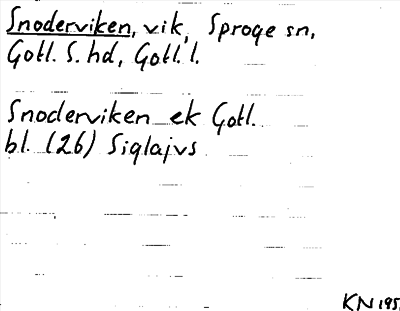 Snoderviken, vik, Sproge sn,
Gotl. S. hd, Gotl. l.
Snoderviken ek Gotl.
bl. (26) Siglajvs
KN 195